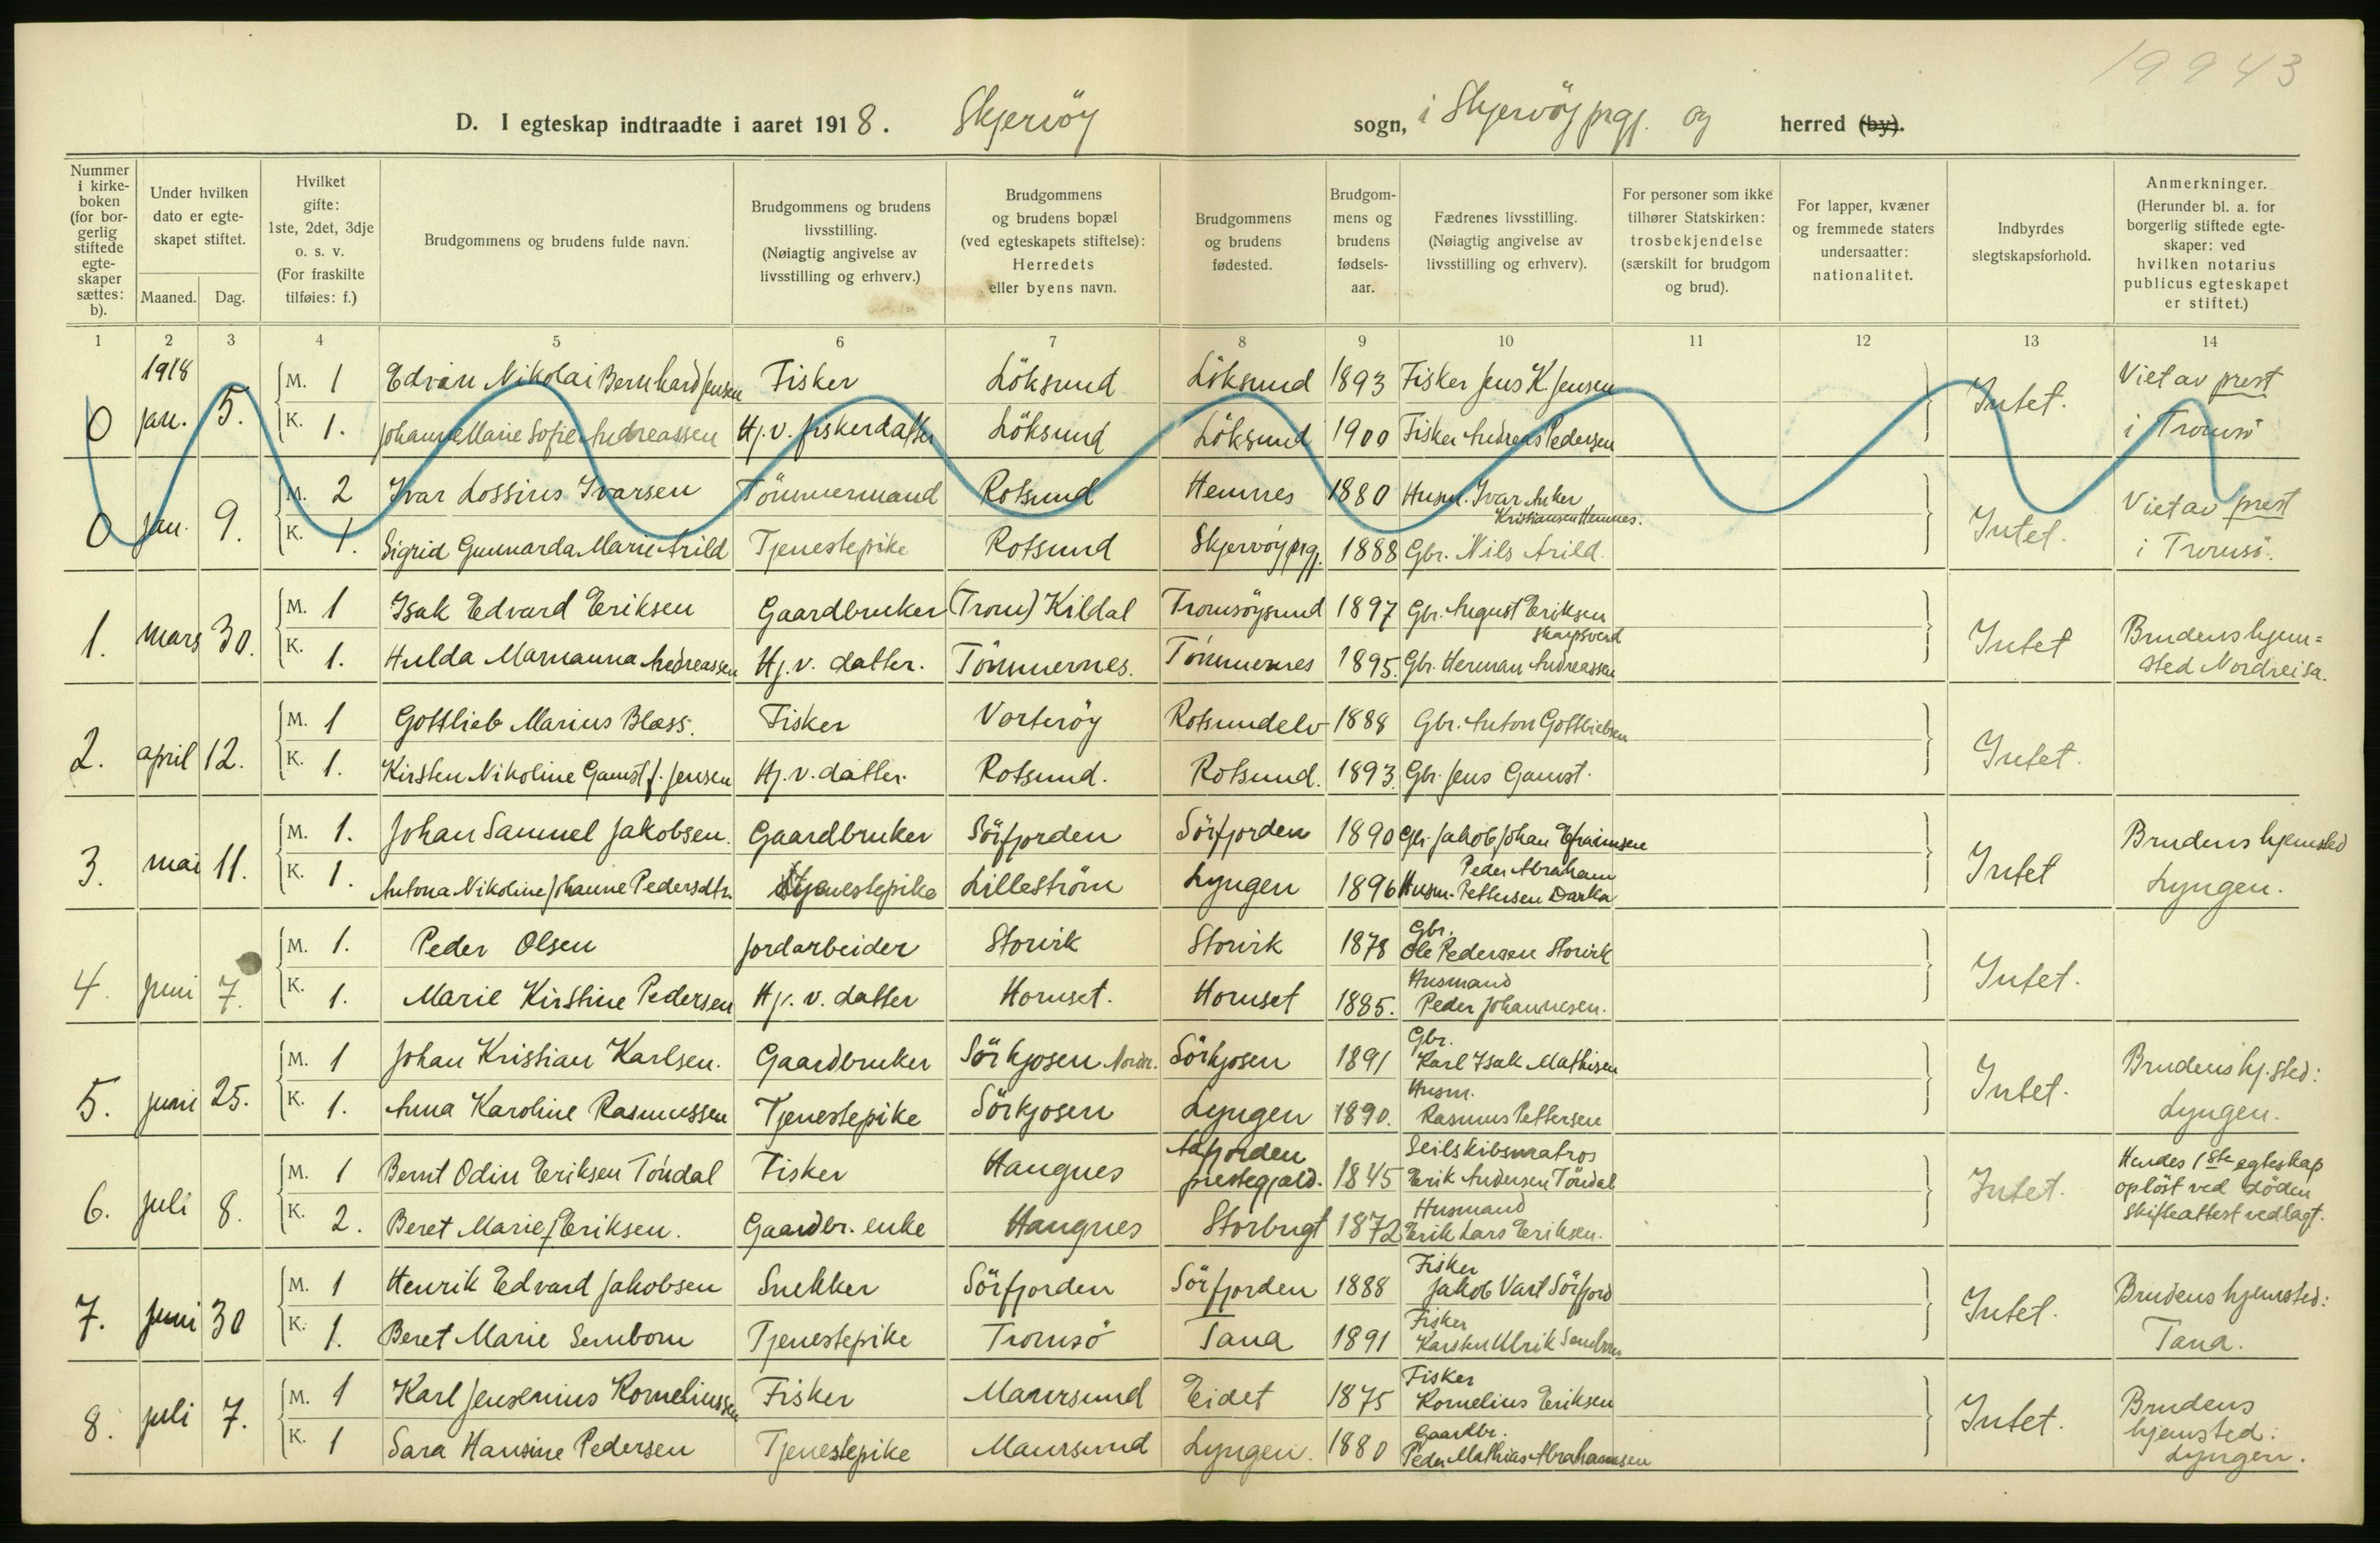 19943
D. I egteskap indtraadte i aaret 1918. Skjervöy sogn, i Skjervöy prgj. og herred (by).
Nummer i kirkeboken (for borgerlig stiftede egteskaper sættes: b).
Under hvilken dato er egteskapet stiftet.
Maaned. Dag.
Hvilket gifte: 1ste, 2det, 3dje o. s. v. (For fraskilte tilføies: f.)
Brudgommens og brudens fulde navn.
Brudgommens og brudens livsstilling. (Nøiagtig angivelse av livsstilling og erhverv.)
Brudgommens og brudens bopæl (ved egteskapets stiftelse): Herredets eller byens navn.
Brudgommens og brudens fødested.
Brudgommens og brudens fødselsaar.
Fædrenes livsstilling. (Nøiagtig angivelse av livsstilling og erhverv).
For personer som ikke tilhører Statskirken: trosbekjendelse (særskilt for brudgom og brud).
For lapper, kvæner og fremmede staters undersaatter: nationalitet.
Indbyrdes slegtskapsforhold.
Anmerkninger. (Herunder bl. a. for borgerlig stiftede egteskaper: ved hvilken notarius publicus egteskapet er stiftet.)
1 2 3 4 5 6 7 8 9 10 11 12 13 14
1918
0 jan. 5. M. 1 Edvin Nikolai Bernhard Jensen Fisker Löksund Löksund 1893 Fisker Jens K. Jensen Intet. Viet av prest
K. 1. Johanne Marie Sofie Andreassen Hj.v. fiskerdatter Löksund Löksund 1900 Fisker Andreas Pedersen i Tromsö
0 jan. 9. M. 2 Ivar Lossius Ivarsen Tömmermand Rotsund Hemnes 1880 Husm. Ivar Anker Kristiansen Hemnes. Intet. Viet av prest
K. 1. Sigrid Gunnarda Marie Arild Tjenestepike Rotsund Skjervöy prgj. 1888 Gbr. Nils Arild. i Tromsö.
1. mars 30. M. 1 Isak Edvard Eriksen Gaardbruker (Troms) Kildal Tromsöysund 1897 Gbr. August Eriksen Skarpsverd Intet Brudens hjem=
K. 1. Hulda Marnanna Andreassen Hj.v. datter. Tömmernes. Tömmernes 1895. Gbr. Herman Andreassen sted Nordreisa.
2. april 12. M. 1 Gottlieb Marius Blæss. Fisker Vorteröy Rotsundelv 1888 Gbr. Anton Gottliebsen Intet.
K. 1. Kirsten Nikoline Gamst f. Jensen Hj.v. datter. Rotsund. Rotsund. 1893. Gbr. Jens Gamst.
3. mai 11. M. 1. Johan Samuel Jakobsen. Gaardbruker Sörfjorden Sörfjorden 1890 Gbr. Jakob Johan Efraimsen Intet Brudens hjemsted
K. 1. Antona Nikoline Johanne Pedersdtr. Tjenestepike Lilleström Lyngen 1896 Husm. Peder Abraham Pettersen Darka Lyngen.
4. juni 7. M. 1. Peder Olsen Jordarbeider Storvik Storvik 1878 Gbr. Ole Pedersen Storvik Intet.
K. 1. Marie Kirstine Pedersen Hj. v. datter Hornset. Hornset 1885. Husmand Peder Johannesen.
5. juni 25. M. 1 Johan Kristian Karlsen. Gaardbruker Sörkjosen Nordr. Sörkjosen 1891 Gbr. Karl Isak Mathisen Intet. Brudens hj.sted:
K. 1. Anna Karoline Rasmussen Tjenestepike Sörkjosen Lyngen 1890. Husm. Rasmus Pettersen Lyngen.
6. juli 8. M. 1 Bernt Odin Eriksen Töndal Fisker Haugnes Aafjorden prestegjæld. 1845 Seilskibsmatros Erik Andersen Töndal Intet. Hendes 1ste egteskap
K. 2. Beret Marie f. Eriksen. Gaardbr. enke Haugnes Storbugt 1872 Husmand Erik Lars Eriksen. oplöst ved döden
skifteattest vedlagt.
7. juni 30 M. 1 Henrik Edvard Jakobsen Snekker Sörfjorden Sörfjorden 1888 Fisker Jakob Vart Sörfjord Intet. Brudens hjemsted:
K. 1. Beret Marie Sembom Tjenestepike Tromsö Tana 1891 Fisker Karsten Ulrik Sembom Tana.
8. juli 7. M. 1 Karl Jensenius Korneliussen Fisker Maursund Eidet 1875 Fisker Kornelius Eriksen Intet. Brudens
K. 1 Sara Hansine Pedersen Tjenestepike Maursund Lyngen. 1880 Gaardbr. Peder Mathias Abrahamsen hjemsted:
Lyngen.